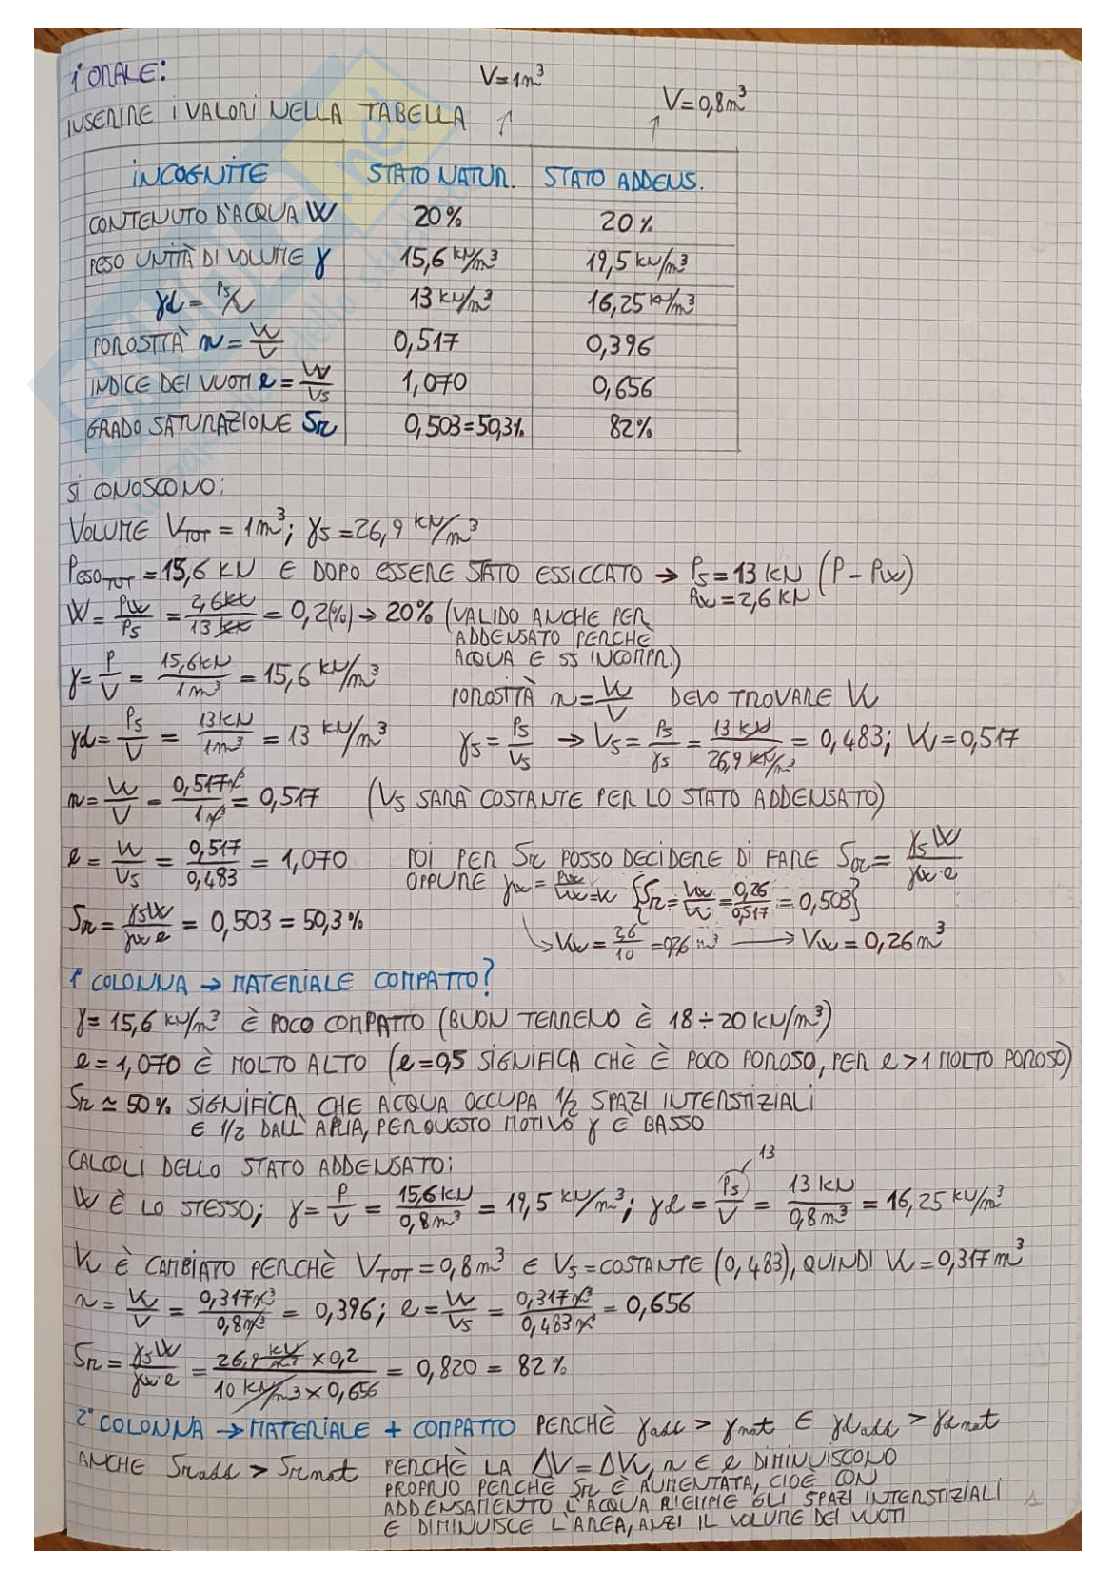 1° ORALE:
V=1m³
V=0,8m³
INSERIRE I VALORI NELLA TABELLA
INCOGNITE STATO NATUR. STATO ADDENS.
CONTENUTO D'ACQUA W 20% 20%
PESO UNITÀ DI VOLUME γ 15,6 kN/m³ 19,5 kN/m³
γd = Ps/V 13 kN/m³ 16,25 kN/m³
POROSITÀ n = Vv/V 0,517 0,396
INDICE DEI VUOTI e = Vv/Vs 1,070 0,656
GRADO SATURAZIONE Sr 0,503=50,3% 82%
SI CONOSCONO:
VOLUME VTOT = 1m³; γs = 26,9 kN/m³
PesoTOT = 15,6 kN E DOPO ESSERE STATO ESSICCATO → Ps = 13 kN (P - Pw)
Pw = 2,6 kN
W = Pw/Ps = 2,6kN/13 kN = 0,2(%) → 20% (VALIDO ANCHE PER
ADDENSATO PERCHE
ACQUA E SS INCOMPR.)
γ = P/V = 15,6kN/1m³ = 15,6 kN/m³
POROSITÀ n = Vv/V DEVO TROVARE Vv
γd = Ps/V = 13kN/1m³ = 13 kN/m³ γs = Ps/Vs → Vs = Ps/γs = 13 kN/26,9 kN/m³ = 0,483; Vv = 0,517
n = Vv/V = 0,517m³/1m³ = 0,517 (Vs SARÀ COSTANTE PER LO STATO ADDENSATO)
e = Vv/Vs = 0,517/0,483 = 1,070 POI PER Sr POSSO DECIDERE DI FARE Sr = γsW/γw e
OPPURE γw = Pw/Vw {Sr = Vw/Vv = 0,26/0,517 = 0,503}
Sr = γsW/γw e = 0,503 = 50,3%
Vw = 2,6/10 = 0,26 m³ → Vw = 0,26 m³
1° COLONNA → MATERIALE COMPATTO?
γ = 15,6 kN/m³ È POCO COMPATTO (BUON TERRENO È 18÷20 kN/m³)
e = 1,070 È MOLTO ALTO (e=0,5 SIGNIFICA CHÈ È POCO POROSO, PER e>1 MOLTO POROSO)
Sr ≃ 50% SIGNIFICA CHE ACQUA OCCUPA 1/2 SPAZI INTERSTIZIALI
E 1/2 DALL'ARIA, PER QUESTO MOTIVO γ È BASSO
CALCOLI DELLO STATO ADDENSATO:
13
W È LO STESSO; γ = P/V = 15,6kN/0,8m³ = 19,5 kN/m³; γd = Ps/V = 13 kN/0,8m³ = 16,25 kN/m³
Vv È CAMBIATO PERCHÈ VTOT = 0,8m³ E Vs = COSTANTE (0,483), QUINDI Vv = 0,317m³
n = Vv/V = 0,317m³/0,8m³ = 0,396; e = Vv/Vs = 0,317m³/0,483m³ = 0,656
Sr = γsW/γw e = 26,9 kN/m³ x 0,2/10 kN/m³ x 0,656 = 0,820 = 82%
2° COLONNA → MATERIALE + COMPATTO PERCHÈ γadd > γnat E γdadd > γdnat
ANCHE Sradd > Srnat PERCHÈ LA ΔV = ΔVv, n E e DIMINUISCONO
PROPRIO PERCHE Sr È AUMENTATA, CIOÈ CON
ADDENSAMENTO L'ACQUA RIEMPIE GLI SPAZI INTERSTIZIALI
E DIMINUISCE L'AREA, ANZI IL VOLUME DEI VUOTI